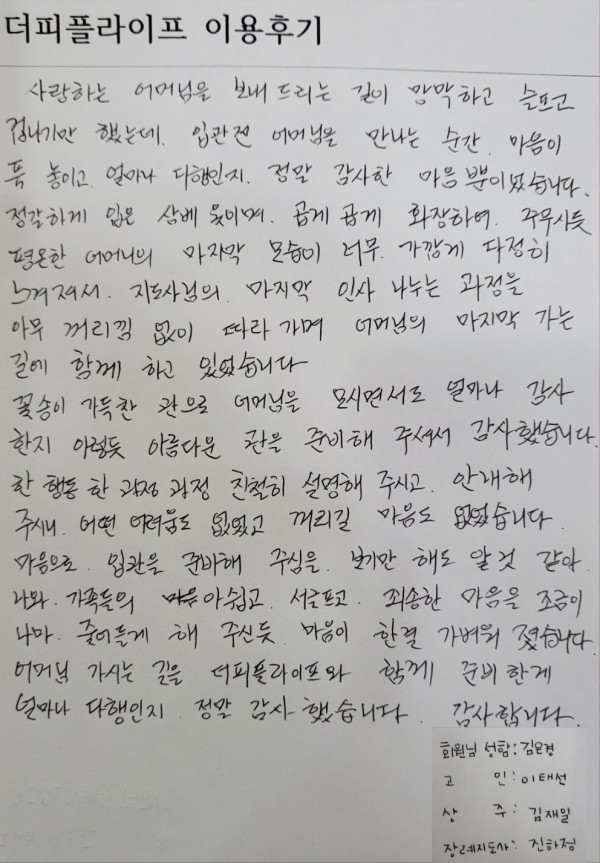 더피플라이프 이용후기
사랑하는 어머님을 보내 드리는 길이 망막하고 슬프고
겁나기만 했는데. 입관전 어머님을 만나는 순간. 마음이
푹 놓이고. 얼마나 다행인지. 정말 감사한 마음뿐이었습니다.
정갈하게 입은 삼베 옷이며. 곱게곱게 화장하여. 주무시듯
평온한 어머니의 마지막 모습이 너무. 가깝게 다정히
느껴져서. 지도사님의. 마지막 인사 나누는 과정을
아무 꺼리낌 없이 따라가며 어머님의 마지막 가는
길에 함께 하고 있었습니다
꽃송이 가득찬 관으로 어머님을 모시면서도 얼마나 감사
한지 이렇듯 아름다운 관을 준비해 주셔서 감사했습니다.
한 행동 한 과정 과정 친절히 설명해 주시고. 안내해
주시니. 어떤 어려움도 없었고 꺼리길 마음도 없었습니다.
마음으로. 입관을 준비해 주심을. 보기만 해도 알것 같아.
나와. 가족들의 아쉽고. 서글프고. 죄송한 마음을 조금이
나마. 줄어들게 해 주신듯. 마음이 한결 가벼워 졌습니다.
어머님 가시는 길을 더피플라이프와 함께 준비한게
얼마나 다행인지. 정말 감사했습니다. 감사합니다.
회원님 성함: 김은경
고 인: 이태선
상 주: 김재일
장례지도사: 진하정